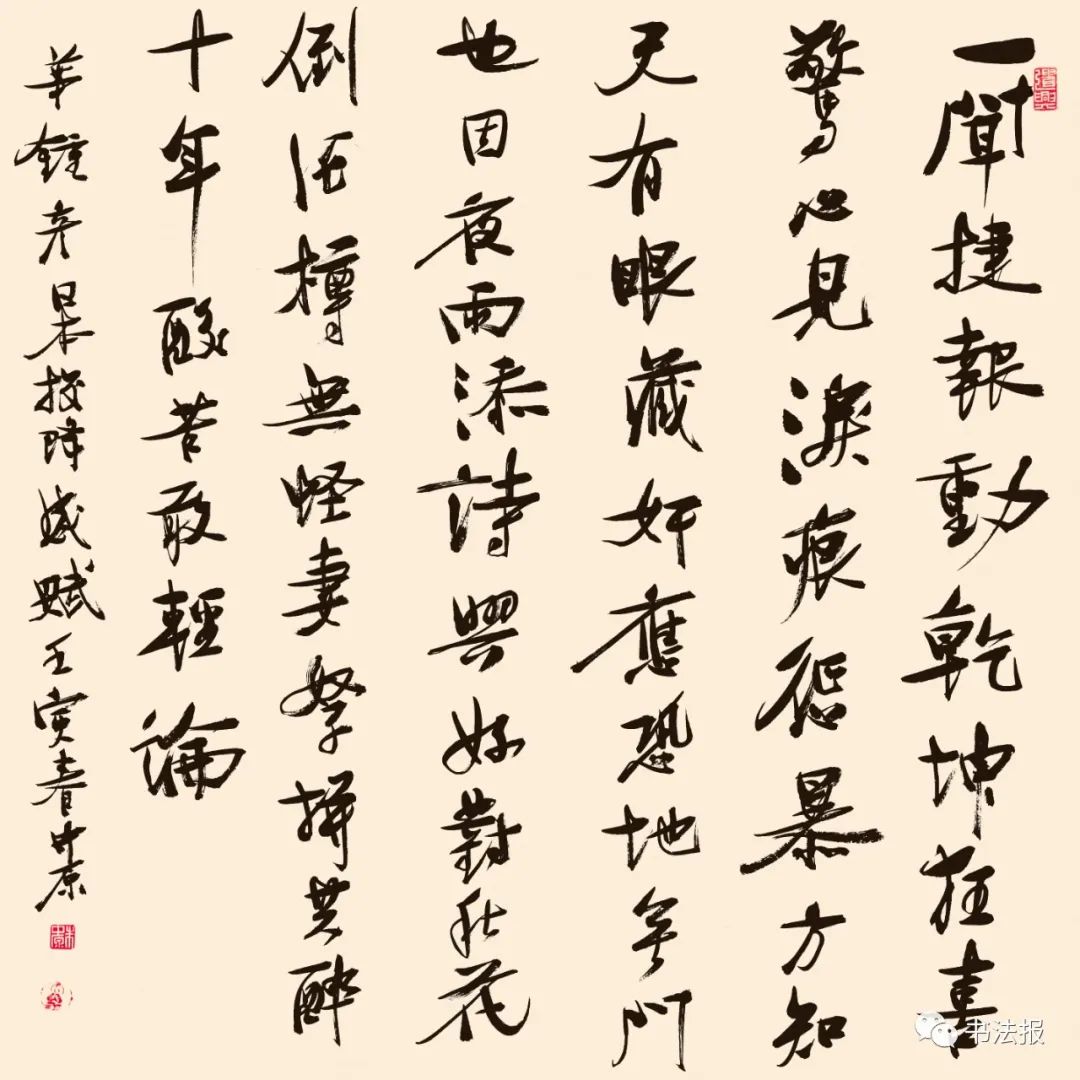 一聞捷報動乾坤狂喜
驚心見淚痕懲暴方知
天有眼藏奸應恐地無門
也因夜雨添詩興好對秋花
倒酒樽無怪妻孥拚共醉
十年酸苦敢輕論
華鍾彥日本投降感賦壬寅春中原
书法报